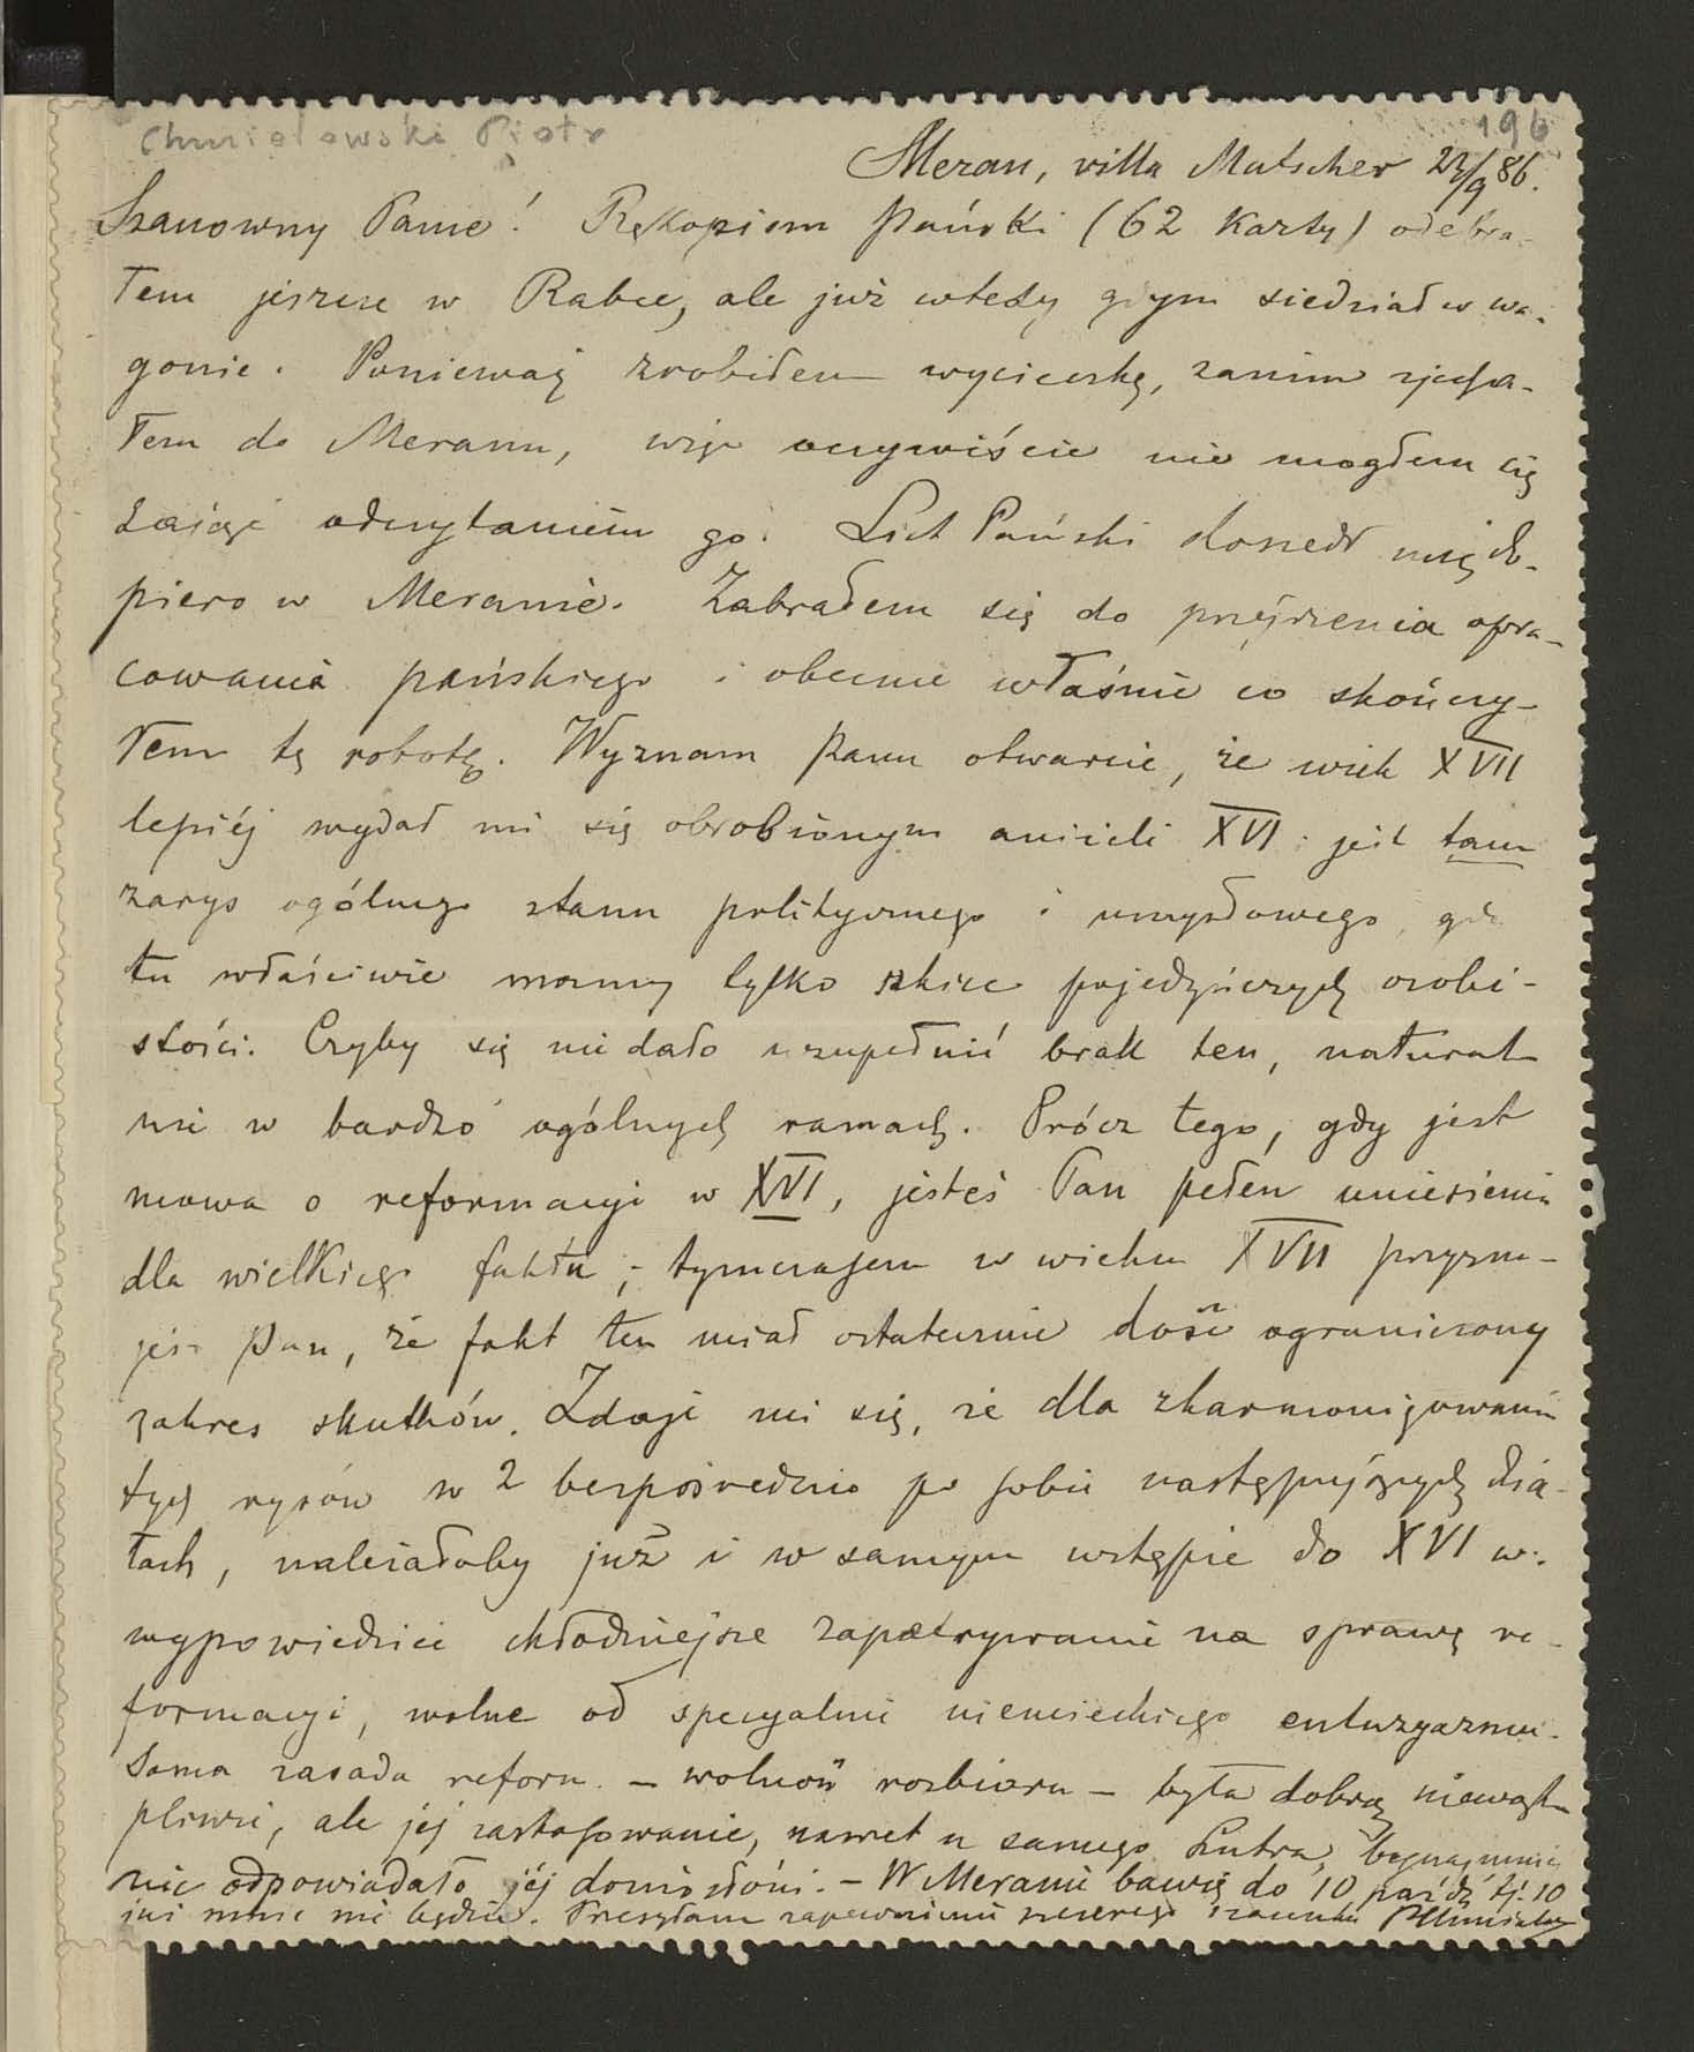 Chmielowski Piotr
196
Meran, villa Matscher 22/9 86.
Szanowny Panie! Rękopism Pański (62 karty) odebra-
łem jeszcze w Rabce, ale już wtedy gdym siedział w wa-
gonie. Ponieważ zrobiłem wycieczkę, zanim zjecha-
łem do Meranu, więc oczywiście nie mogłem się
zająć odczytaniem go. List Pański doszedł mię do-
piero w Meranie. Zabrałem się do przejrzenia opra-
cowania pańskiego i obecnie właśnie co skończy-
łem tę robotę. Wyznam panu otwarcie, że wiek XVII
lepiéj wydał mi się obrobionym aniżeli XVI: jest tam
zarys ogólnego stanu politycznego i umysłowego, gdy
tu właściwie mamy tylko szkice pojedyńczych osobi-
stości. Czyby się nie dało uzupełnić brak ten, natural-
nie w bardzo ogólnych ramach. Prócz tego, gdy jest
mowa o reformacyi w XVI, jesteś Pan pełen uniesienia
dla wielkiego faktu; tymczasem w wieku XVII przyzna-
jesz Pan, że fakt ten miał ostatecznie dość ograniczony
zakres skutków. Zdaje mi się, że dla zharmonizowania
tych rysów w 2 bezpośrednio po sobie następujących dzia-
łach, należałoby już i w samym wstępie do XVI w.
wypowiedzieć chłodniejsze zapatrywanie na sprawę re-
formacyi, wolne od specyalnie niemieckiego entuzyazmu.
Sama zasada reform. – wolność rozbioru – była dobrą niewąt-
pliwie, ale jej zastosowanie, nawet u samego Lutra, bynajmniej
nie odpowiadało jéj doniosłości. – W Meranie bawię do 10 paźdź. tj. 10
już mnie nie będzie. Przesyłam zapewnienie szczerego szacunku PChmielowski